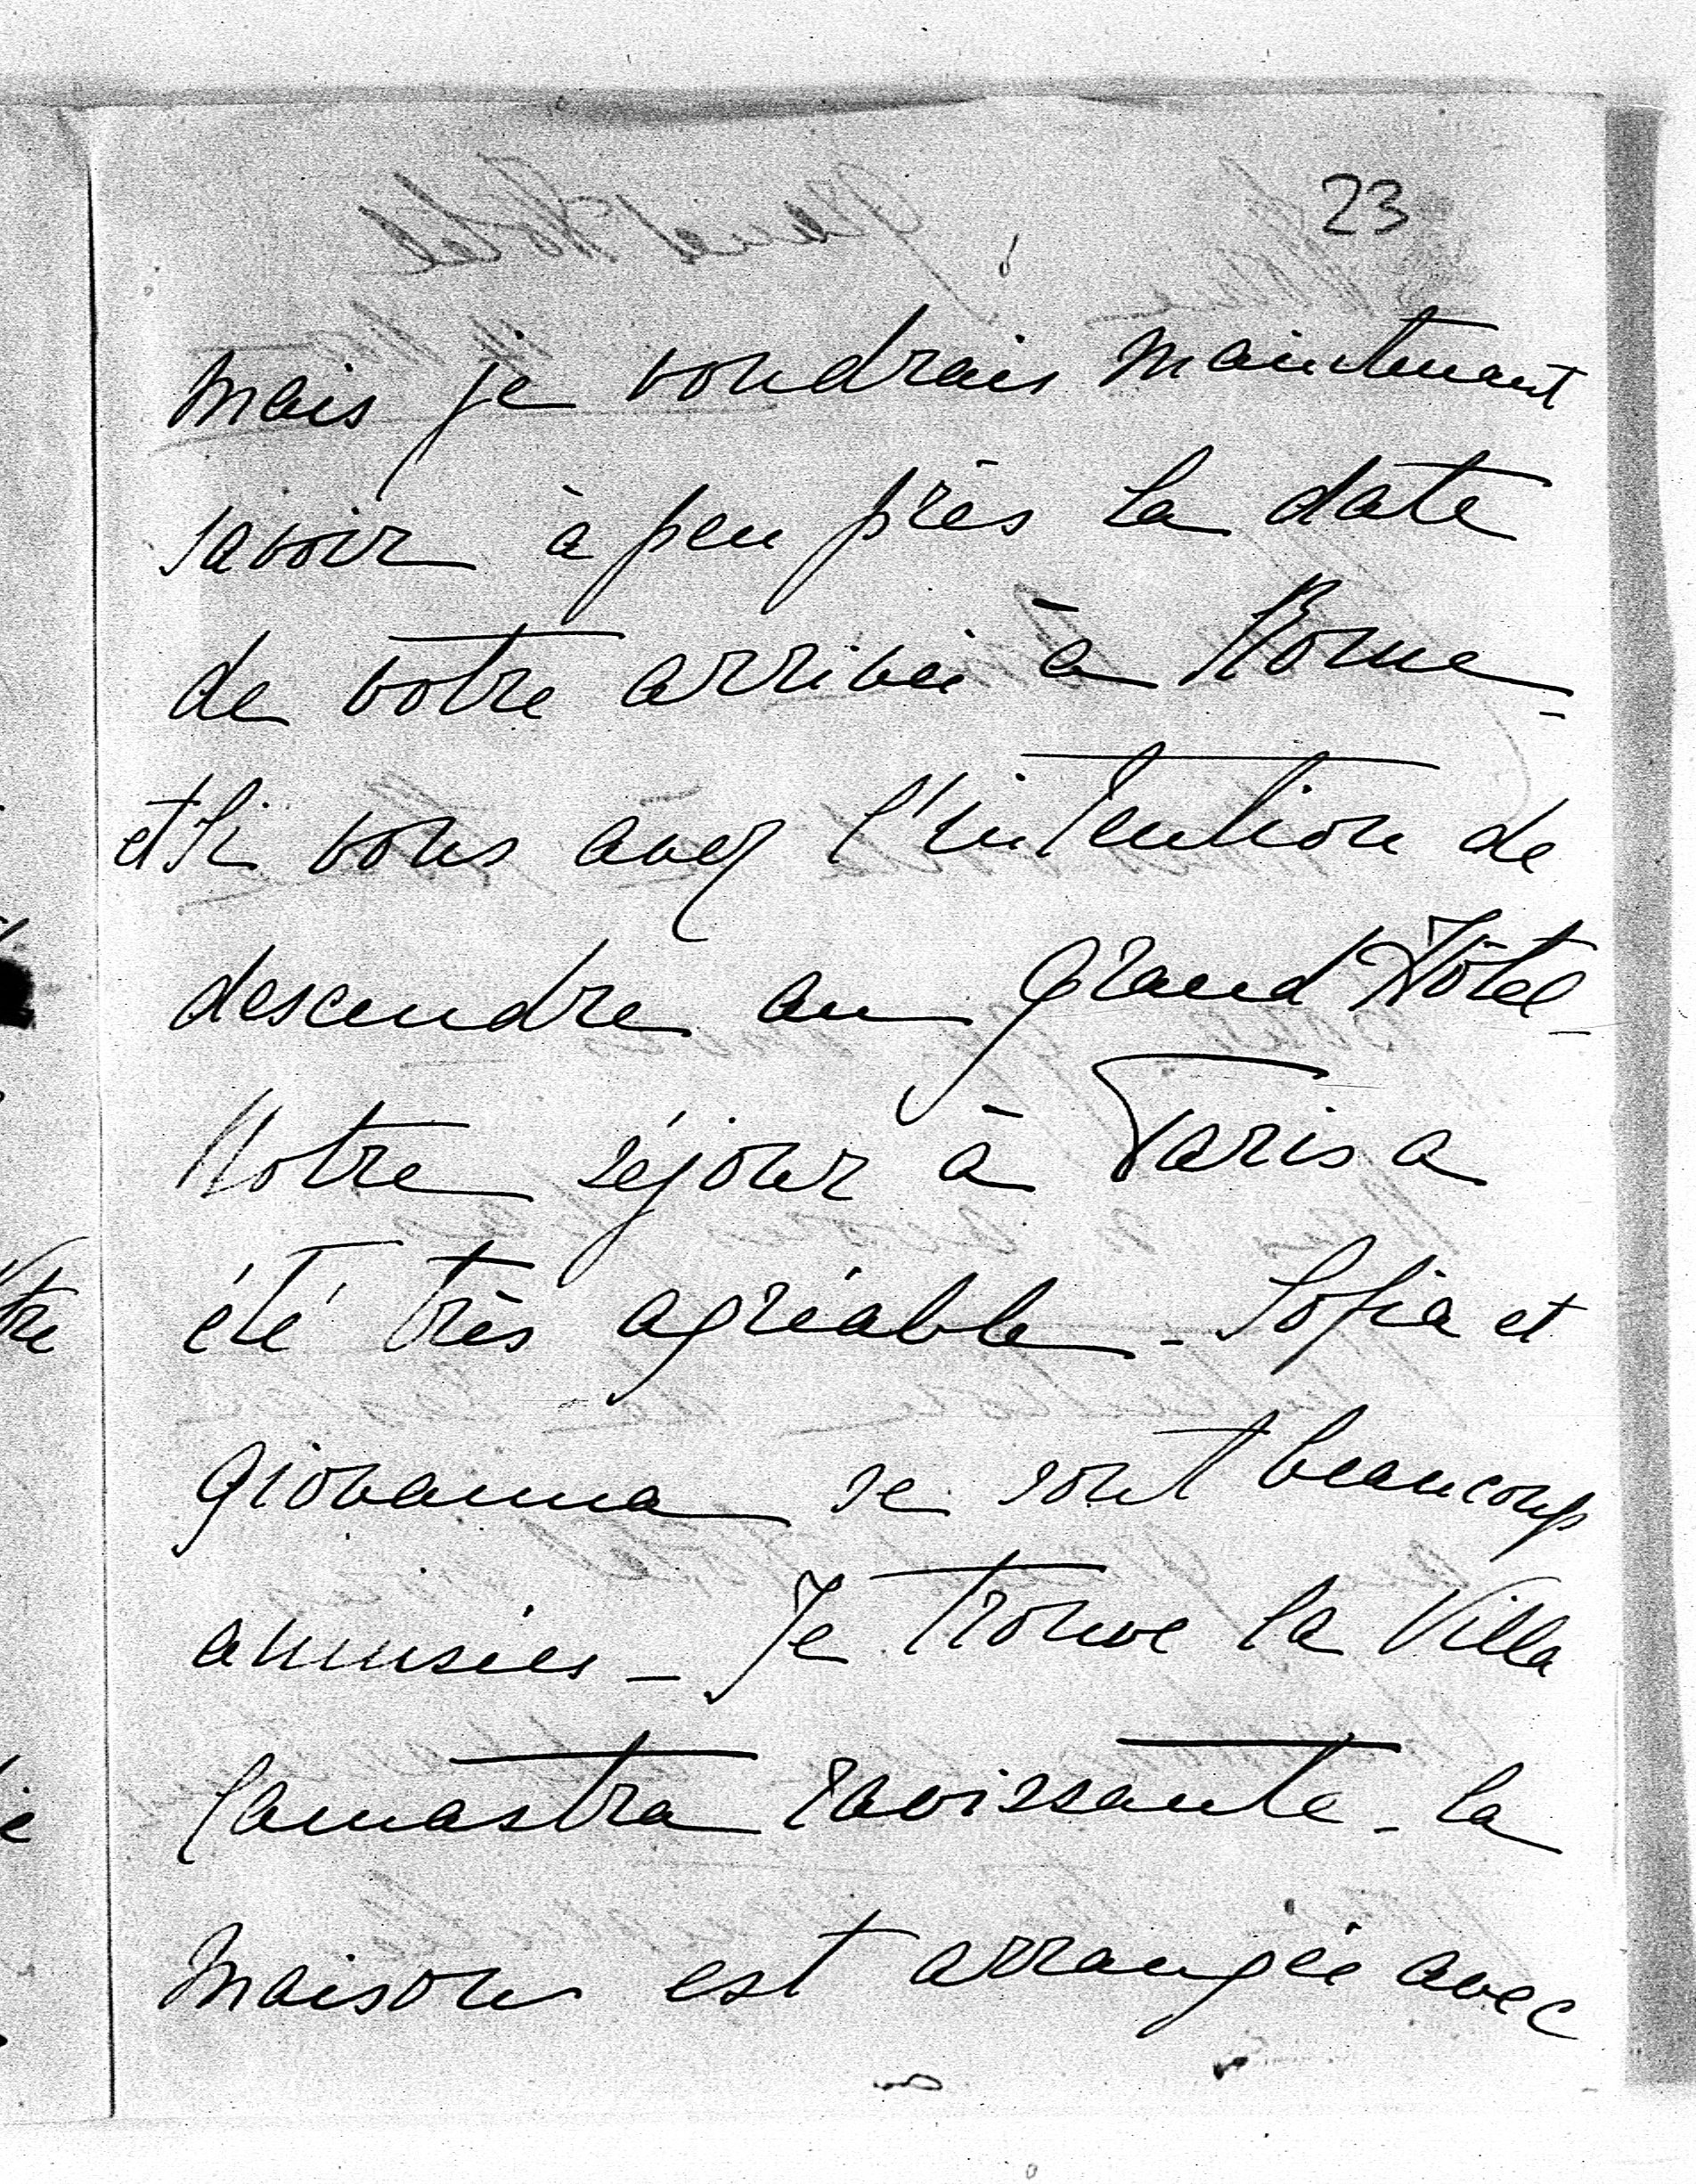 23
mais je voudrais maintenant
savoir à peu près la date
de votre arrivée à Rome -
et si vous avez l'intention de
descendre au Grand Hôtel -
Notre séjour à Paris a
été très agréable - Sofia et
Giovanna se sont beaucoup
amusées - Je trouve la Villa
Lamastra ravissante - la
maison est arrangée avec